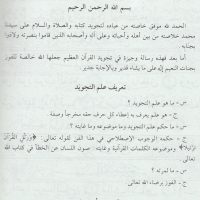 بسم الله الرحمن الرحيم
الحمد لله موفق خاصته من عباده لتجويد كتابه والصلاة والسلام على سيدنا
محمد خلاصته من بين أهله وأحبائه وعلى آله وأصحابه الذين قاموا بنصرته ولاذوا
بجنابه
أما بعد فهذه رسالة وجيزة في تجويد القرآن العظيم جعلها الله خالصة للفوز
بجنات النعيم إنه على ما يشاء قدير وبالإجابة جدير
تعريف علم التجويد
س - ما هو علم التجويد ؟
ج - هو علم يعرف به إعطاء كل حرف حقه مخرجاً وصفة.
س - ما حكم علم التجويد وما موضوعه وما غايته ؟
ج - حكمه الوجوب الإصطلاحي في هذا الفن لقوله تعالى: ﴿ورتل القرآن
ترتيلا﴾ وموضوعه الكلمات القرآنية وغايته: صون اللسان عن الخطأ في كتاب الله
تعالى.
س - ما ثمرته ؟
ج - الفوز برضاء الله تعالى